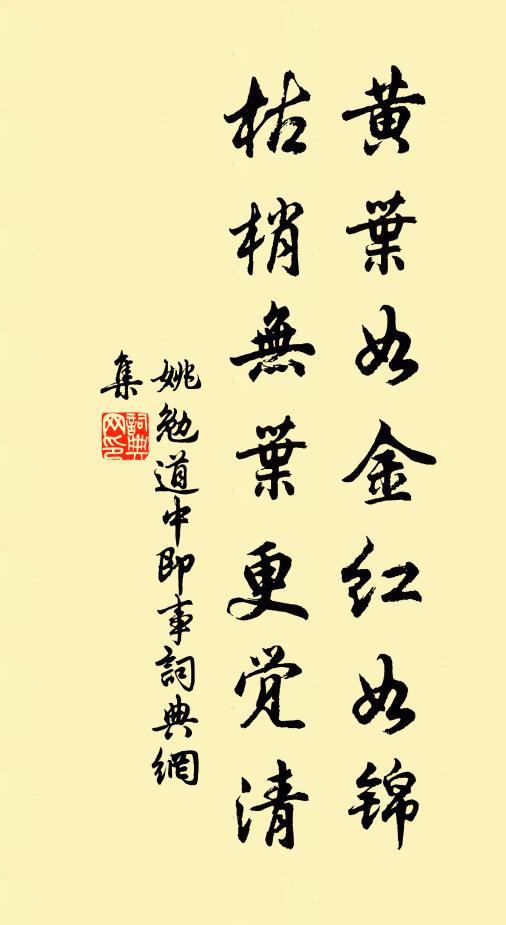 黄葉如金红如锦
枯梢無葉更觉清
姚勉道中即事詞典網
集
詞典
网印